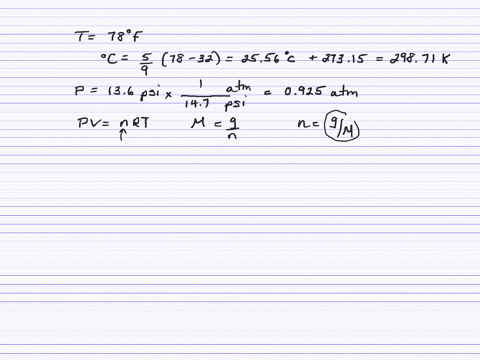 T = 78°F
°C = 5/9 (78-32) = 25.56°C + 273.15 = 298.71 K
P = 13.6 psi × 1 atm/14.7 psi = 0.925 atm
PV = nRT M = g/n n = g/M